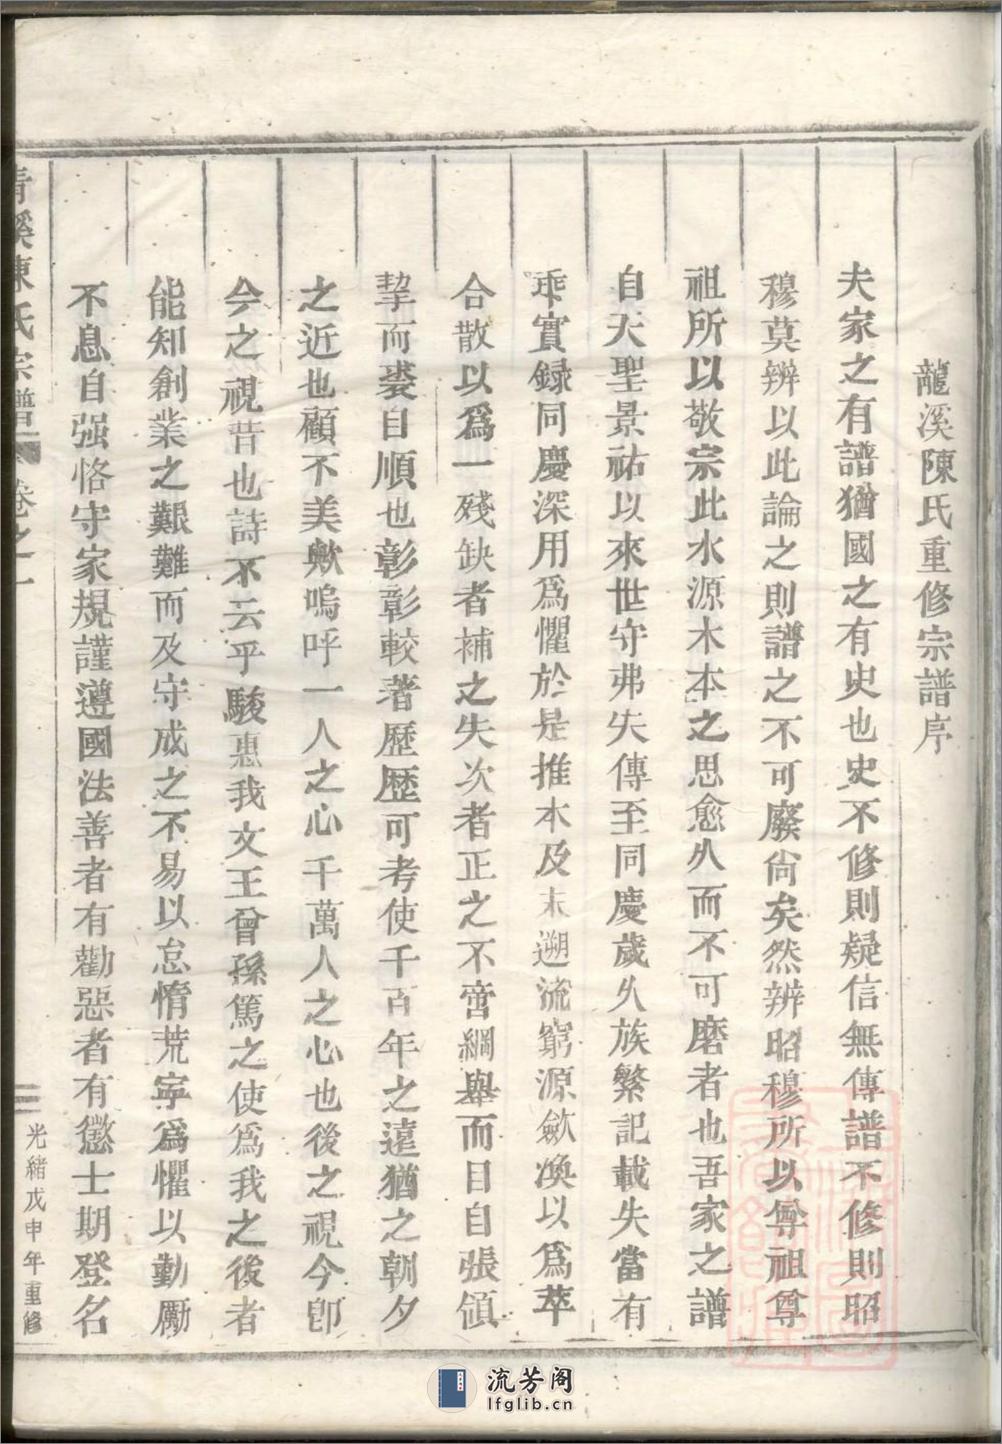 龍溪陳氏重修宗譜序
夫家之有譜猶國之有史也史不修則疑信無傳譜不修則昭
穆莫辨以此論之則譜之不可廢尙矣然辨昭穆所以尊祖尊
祖所以敬宗此水源木本之思愈久而不可磨者也吾家之譜
自天聖景祐以來世守弗失傳至同慶歲久族繁記載失當有
乖實録同慶深用爲懼於是推本及末遡流窮源歛渙以爲萃
合散以爲一殘缺者補之失次者正之不啻綱舉而目自張領
挈而裘自順也彰彰較著歷歷可考使千百年之遠猶之朝夕
之近也顧不美歟嗚呼一人之心千萬人之心也後之視今卽
今之視昔也詩不云乎駿惠我文王曾孫篤之使爲我之後者
能知創業之艱難而及守成之不易以怠惰荒寧爲懼以勤勵
不息自强恪守家規謹遵國法善者有勸惡者有懲士期登名
青溪陳氏宗譜 卷之一 二 光緒戊申年重修
流芳阁
lfglib.cn